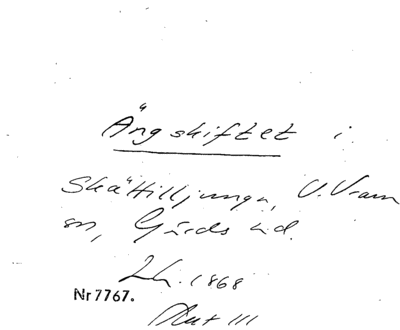 Ängskiftet i
Skättilljunga, V. Vram
sn, Gärds hd.
Lh. 1868
Nr 7767.
Akt III